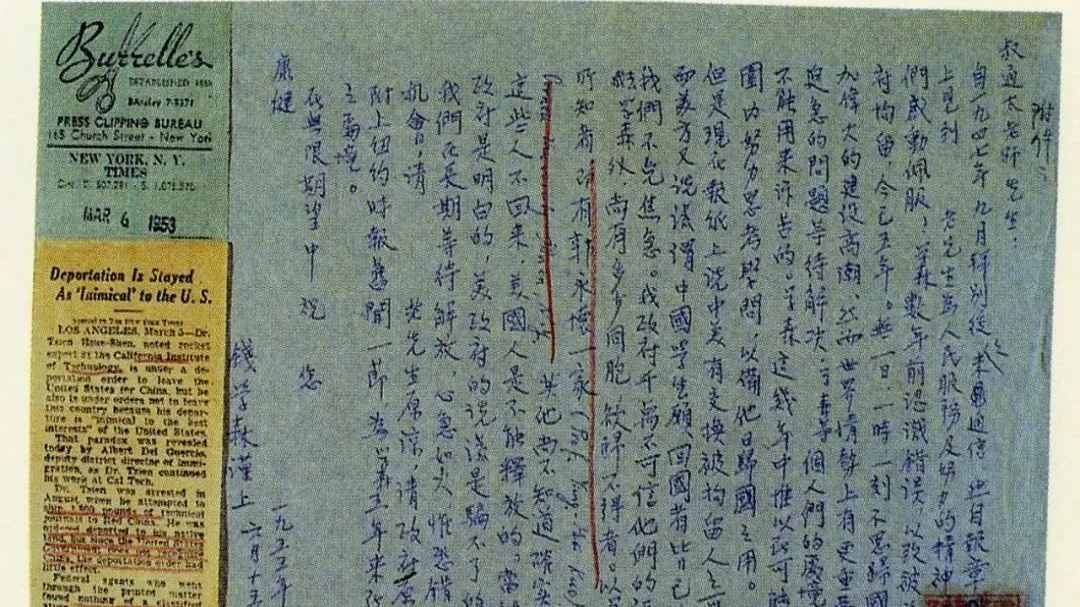 Burrelle's
ESTABLISHED 1888
BArclay 7-5371
PRESS CLIPPING BUREAU
165 Church Street - New York
NEW YORK, N. Y.
TIMES
MAR 6 1953
Deportation Is Stayed
As 'Inimical' to the U. S.
Special to THE NEW YORK TIMES
LOS ANGELES, March 5—Dr.
Tsien Hsue-Shen, noted rocket
expert at the California Institute
of Technology, is under a de-
portation order to leave the
United States for China, but he
also is under orders not to leave
this country because his depar-
ture is "inimical to the best
interests" of the United States.
That paradox was revealed
today by Albert Del Guercio,
deputy district director of immi-
gration, as Dr. Tsien continued
his work at Cal Tech.
Dr. Tsien was arrested in
August when he attempted to
ship 1,800 pounds of technical
journals to Red China. He was
ordered deported to his native
land, but since the United States
Government does not recognize
China, the deportation order had
little effect.
Federal agents who went
through the printed matter
found nothing of a classified
附件
叔通太老師先生：
自一九四七年九月拜別後久未通信，然自報章
上見到 老先生為人民服務及努力的精神
們感動佩服！學森數年前認識錯誤，以致被
府拘留，今已五年。無一日、一時、一刻不思歸國
加偉大的建設高潮。然而世界情勢上有更重
迫急的問題等待解決，學森等個人們的處境
不能用來訴苦的。學森這幾年中惟以在可能
圍內努力思考學問，以備他日歸國之用。
但是現在報紙上說中美有交換被拘留人之
而美方又說謊謂中國學生願回國者皆已
我們不免焦急。我政府千萬不可信他們的話
除學森外，尚有多少同胞，欲歸不得者。以
所知者，郭永懷一家
其他尚不知道確實
這些人不回來，美國人是不能釋放的。當
政府是明白的，美政府的說謊是騙不了的
我們在長期等待解放，心急如火，惟恐錯
機會，請 老先生原諒，請政府原
附上紐約時報舊聞一節，為學森五年來在
之處境。
在無限期望中祝 您
康健
錢學森謹上
一九五五年
六月十五